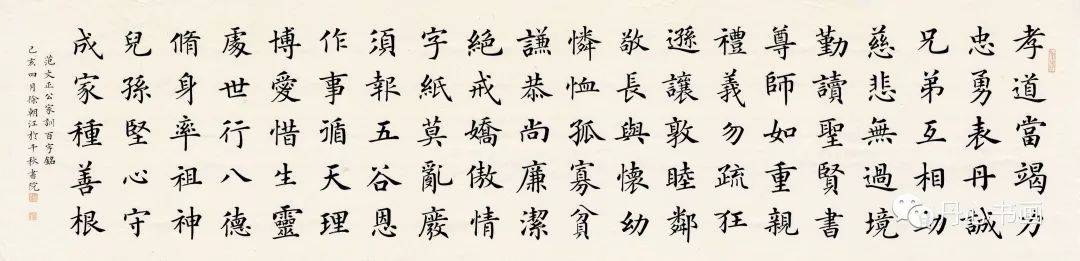 孝道當竭力
忠勇表丹誠
兄弟互相助
慈悲無過境
勤讀聖賢書
尊師如重親
禮義勿疏狂
遜讓敦睦鄰
敬長與懷幼
憐恤孤寡貧
謙恭尚廉潔
絕戒嬌傲情
字紙莫亂廢
須報五谷恩
作事循天理
博愛惜生靈
處世行八德
脩身率祖神
兒孫堅心守
成家種善根
范文正公家訓百字銘
己亥四月徐朝江於千秋書院
丹心书画